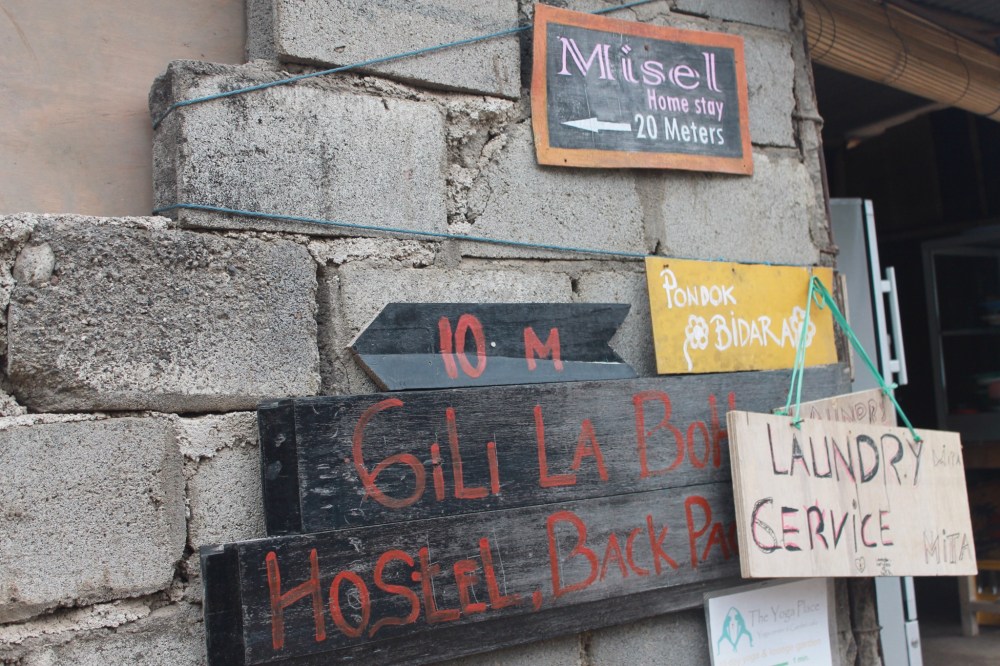 Misel
Home stay
20 Meters
PONDOK
BIDARA
10 M
GiLi LA BoH
LAUNDRY
SERVICE
MITA
HOStEL, BACK PA
The Yoga Place